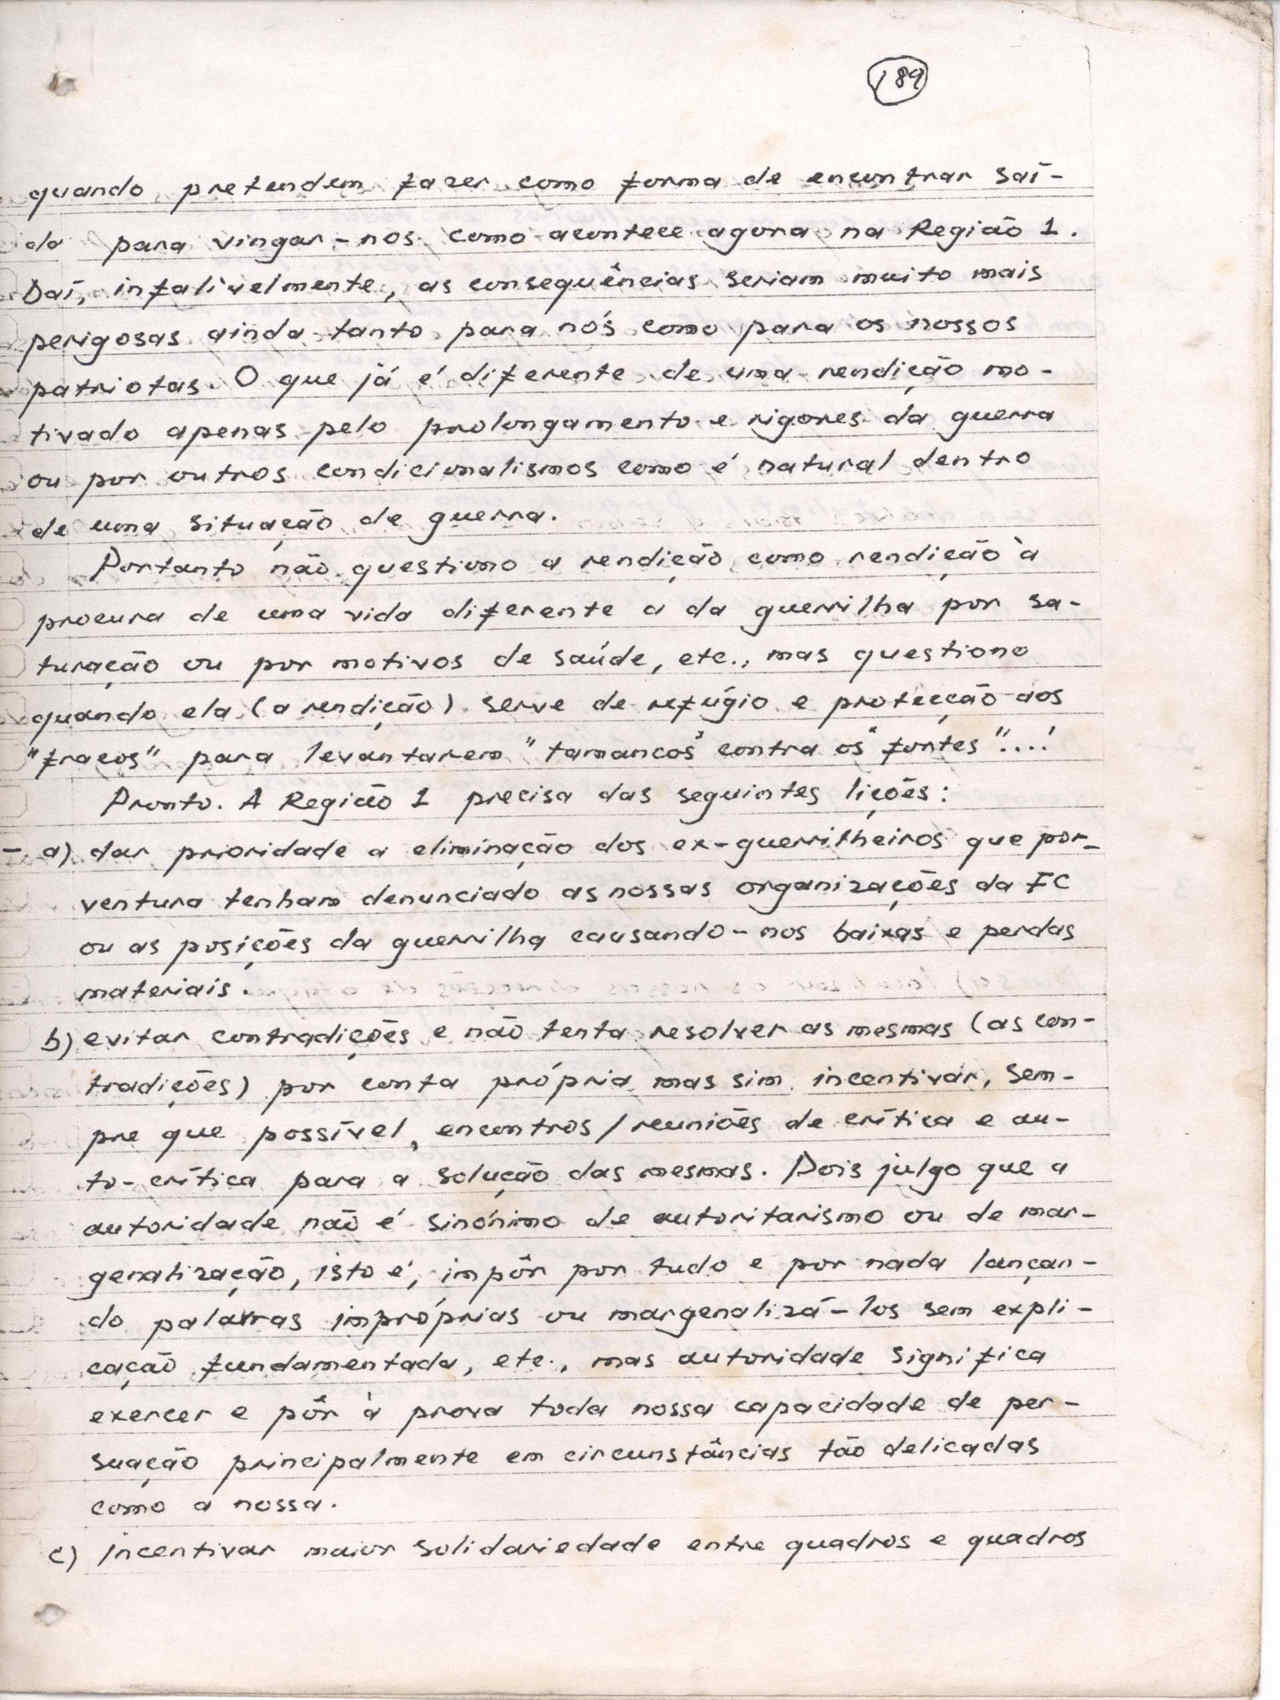 189
quando pretendem fazer como forma de encontrar saí-
da para vingar-nos como acontece agora na Região 1.
Daí, infalívelmente, as consequências seriam muito mais
perigosas ainda tanto para nós como para os nossos
patriotas. O que já é diferente de uma rendição mo-
tivado apenas pelo prolongamento e rigores da guerra
ou por outros condicionalismos como é natural dentro
de uma situação de guerra.
Portanto não questiono a rendição como rendição à
procura de uma vida diferente a da guerrilha por sa-
turação ou por motivos de saúde, etc., mas questiono
quando ela (a rendição) serve de refúgio e protecção aos
"fracos" para levantarem "tamancos" contra os "fortes"...!
Pronto. A Região 1 precisa das seguintes lições:
- a) dar prioridade a eliminação dos ex-guerrilheiros que por-
ventura tenham denunciado as nossas organizações da FC
ou as posições da guerrilha causando-nos baixas e perdas
materiais.
b) evitar contradições e não tenta resolver as mesmas (as con-
tradições) por conta própria mas sim incentivar, sem-
pre que possível, encontros/reuniões de crítica e au-
to-crítica para a solução das mesmas. Pois julgo que a
autoridade não é sinónimo de autoritarismo ou de mar-
genalização, isto é, impôr por tudo e por nada lançan-
do palavras impróprias ou margenalizá-los sem expli-
cação fundamentada, etc., mas autoridade significa
exercer e pôr à prova toda nossa capacidade de per-
suação principalmente em circunstâncias tão delicadas
como a nossa.
c) incentivar maior solidariedade entre quadros e quadros